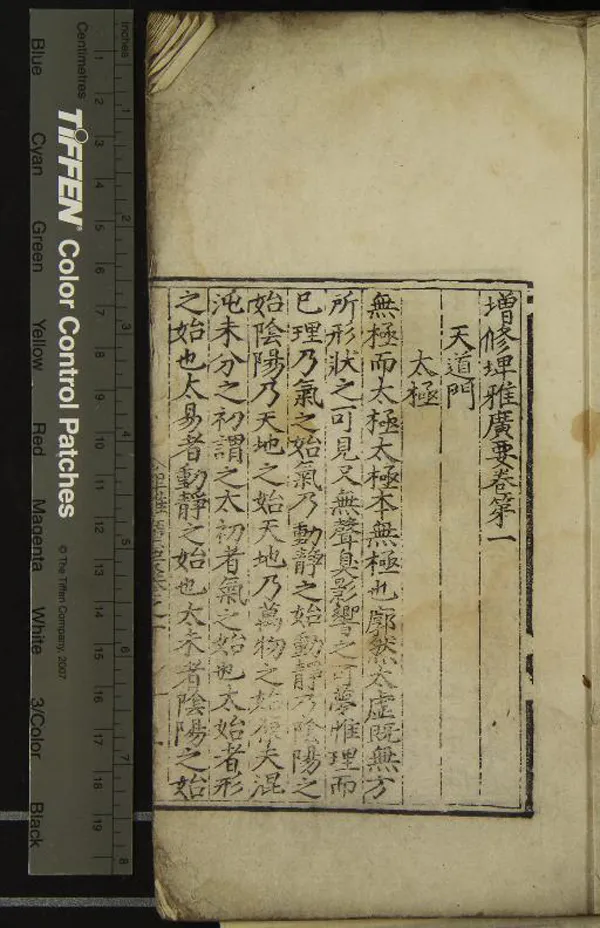 增修埤雅廣要卷第一
天道門
太極
無極而太極太極本無極也廓然太虛既無方
所形狀之可見又無聲臭影響之可夢惟理而
已理乃氣之始氣乃動靜之始動靜乃陰陽之
始陰陽乃天地之始天地乃萬物之始 夫混
沌未分之初謂之太初者氣之始也太始者形
之始也太易者動靜之始也太素者陰陽之始
Inches
Centimetres
1 2 3 4 5 6 7 8
1 2 3 4 5 6 7 8 9 10 11 12 13 14 15 16 17 18 19
TIFFEN® Color Control Patches
© The Tiffen Company, 2007
Blue Cyan Green Yellow Red Magenta White 3/Color Black